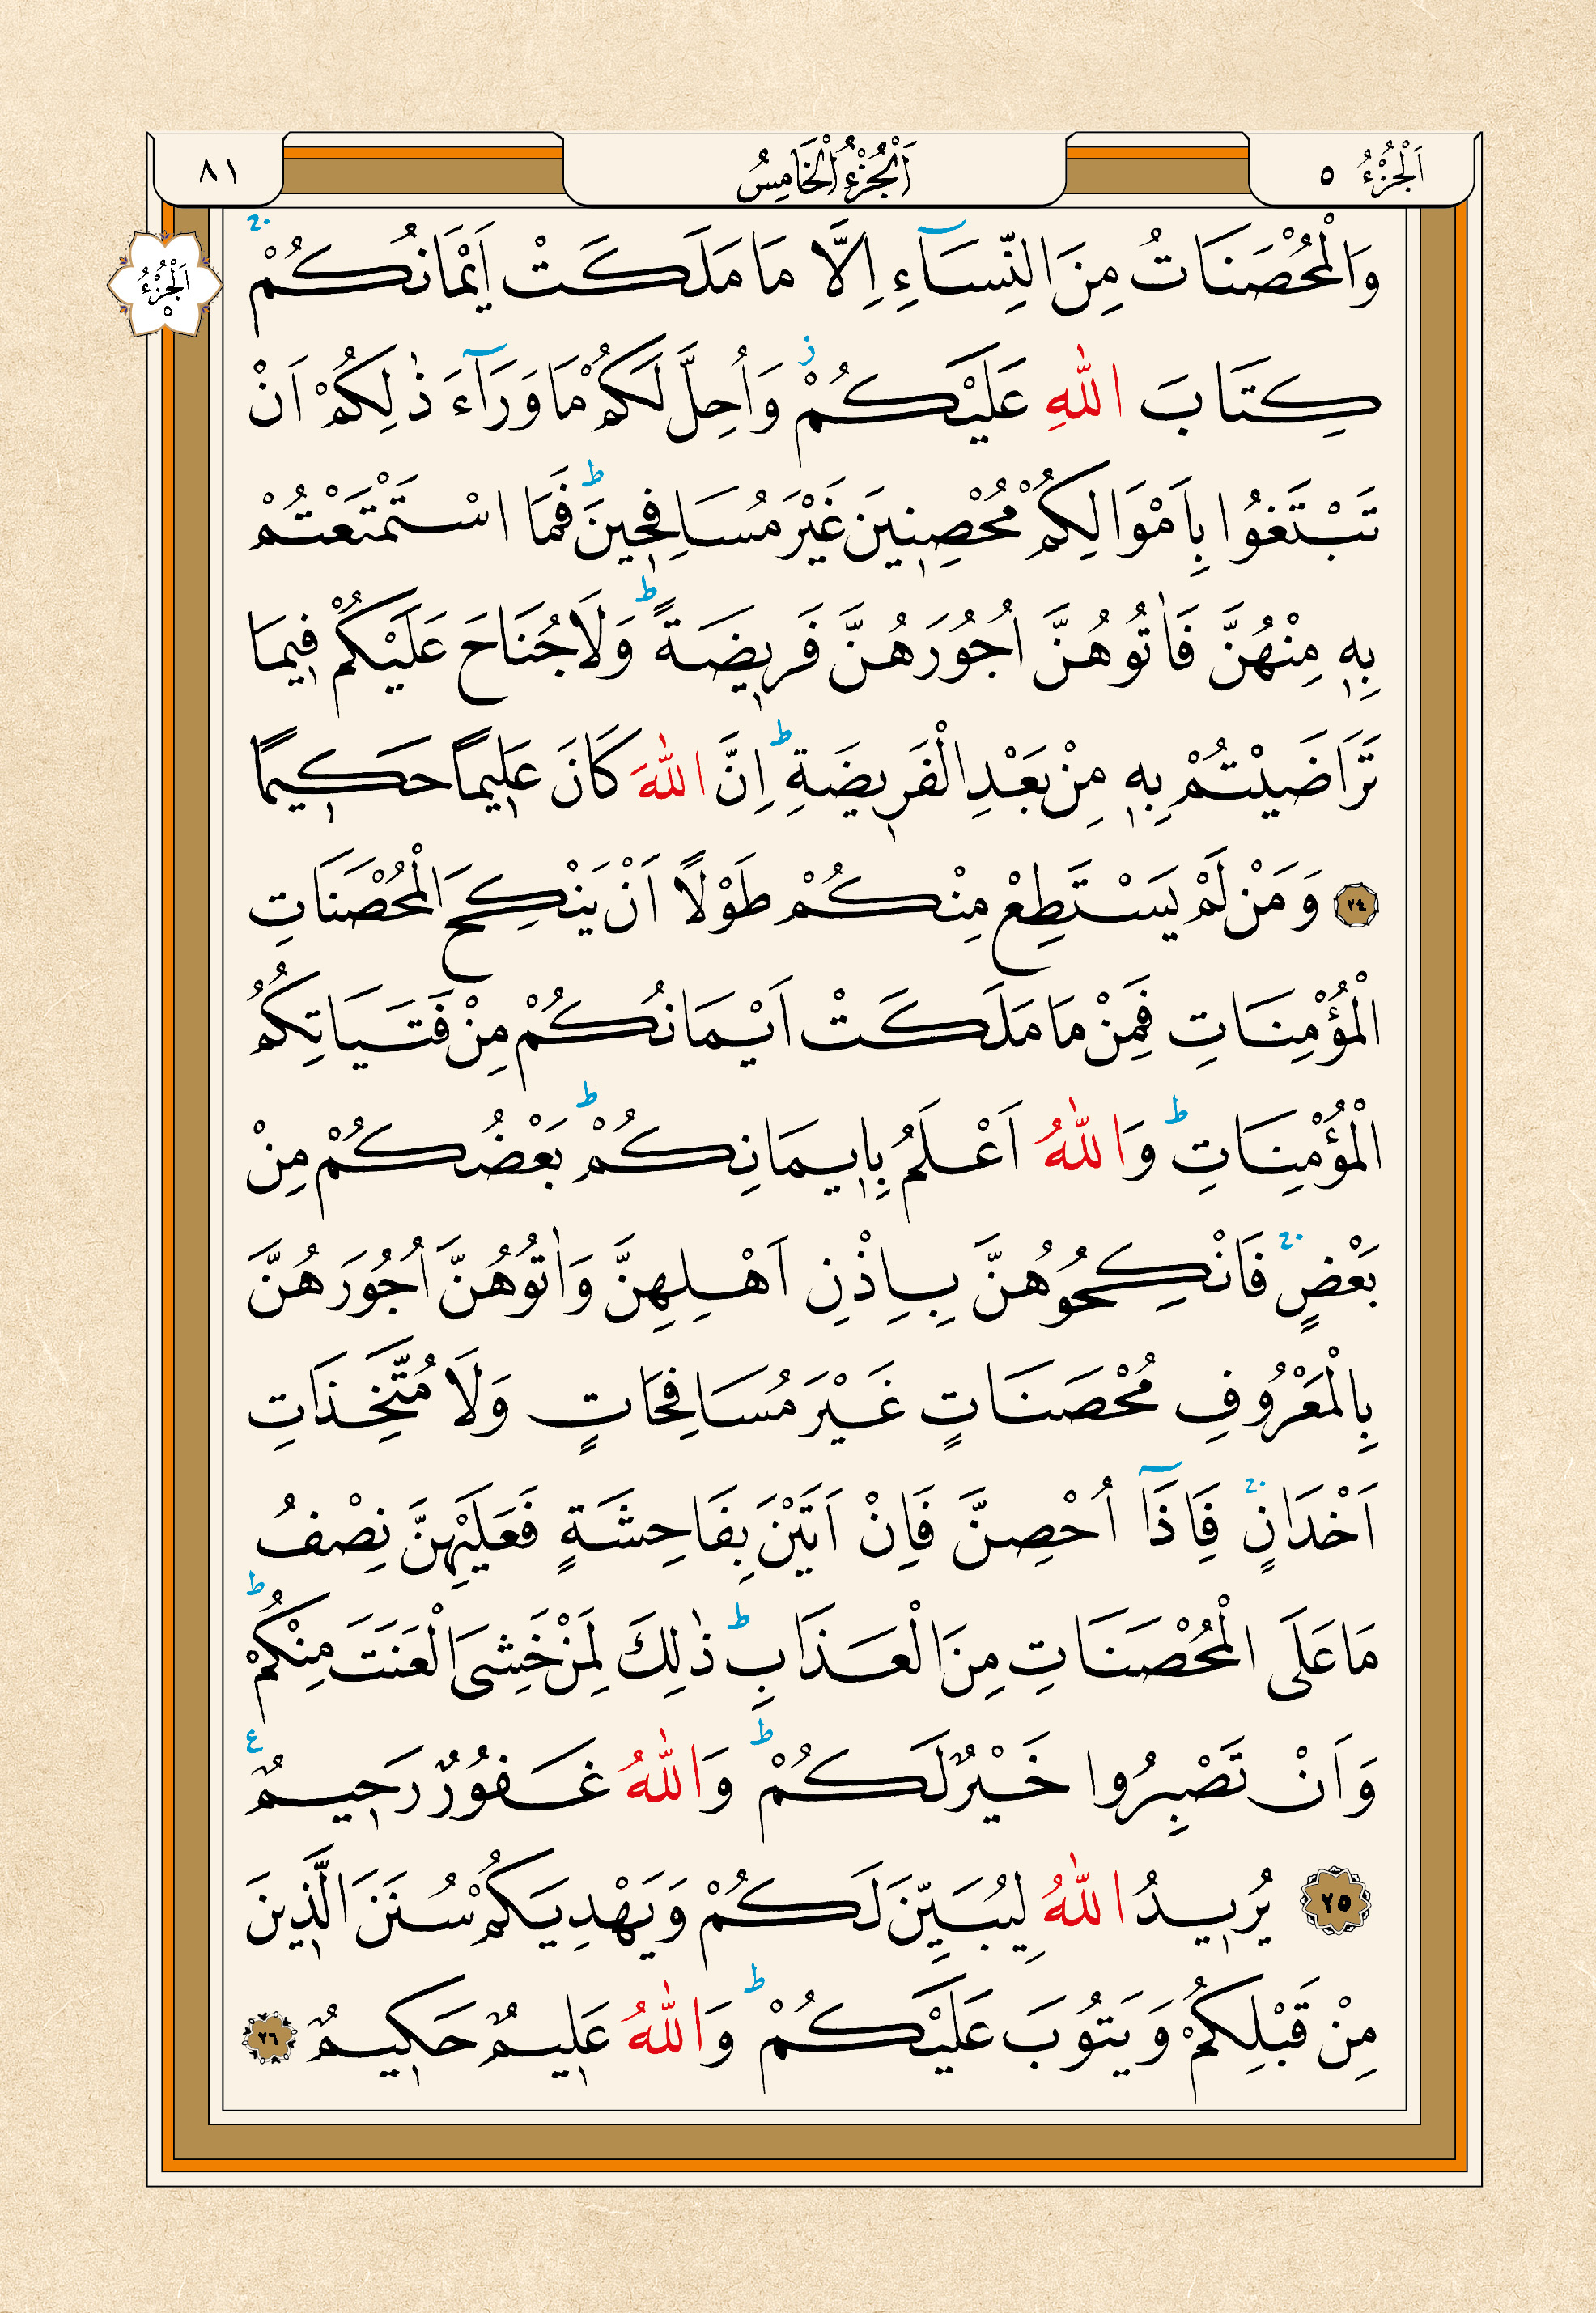 اَلْجُزْءُ ٥
اَلْجُزْءُ الْخَامِسُ
٨١
اَلْجُزْءُ
٥
وَالْمُحْصَنَاتُ مِنَ النِّسَٓاءِ اِلَّا مَا مَلَكَتْ اَيْمَانُكُمْۚ
كِتَابَ اللّٰهِ عَلَيْكُمْۚ وَاُحِلَّ لَكُمْ مَا وَرَٓاءَ ذٰلِكُمْ اَنْ
تَبْتَغُوا بِاَمْوَالِكُمْ مُحْصِنٖينَ غَيْرَ مُسَافِحٖينَؕ فَمَا اسْتَمْتَعْتُمْ
بِهٖ مِنْهُنَّ فَاٰتُوهُنَّ اُجُورَهُنَّ فَرٖيضَةًؕ وَلَا جُنَاحَ عَلَيْكُمْ فٖيمَا
تَرَاضَيْتُمْ بِهٖ مِنْ بَعْدِ الْفَرٖيضَةِؕ اِنَّ اللّٰهَ كَانَ عَلٖيمًا حَكٖيمًا
٢٤ وَمَنْ لَمْ يَسْتَطِعْ مِنْكُمْ طَوْلًا اَنْ يَنْكِحَ الْمُحْصَنَاتِ
الْمُؤْمِنَاتِ فَمِنْ مَا مَلَكَتْ اَيْمَانُكُمْ مِنْ فَتَيَاتِكُمُ
الْمُؤْمِنَاتِؕ وَاللّٰهُ اَعْلَمُ بِاٖيمَانِكُمْؕ بَعْضُكُمْ مِنْ
بَعْضٍۚ فَانْكِحُوهُنَّ بِاِذْنِ اَهْلِهِنَّ وَاٰتُوهُنَّ اُجُورَهُنَّ
بِالْمَعْرُوفِ مُحْصَنَاتٍ غَيْرَ مُسَافِحَاتٍ وَلَا مُتَّخِذَاتِ
اَخْدَانٍۚ فَاِذَٓا اُحْصِنَّ فَاِنْ اَتَيْنَ بِفَاحِشَةٍ فَعَلَيْهِنَّ نِصْفُ
مَا عَلَى الْمُحْصَنَاتِ مِنَ الْعَذَابِؕ ذٰلِكَ لِمَنْ خَشِىَ الْعَنَتَ مِنْكُمْؕ
وَاَنْ تَصْبِرُوا خَيْرٌ لَكُمْؕ وَاللّٰهُ غَفُورٌ رَحٖيمٌ ع
٢٥ يُرٖيدُ اللّٰهُ لِيُبَيِّنَ لَكُمْ وَيَهْدِيَكُمْ سُنَنَ الَّذٖينَ
مِنْ قَبْلِكُمْ وَيَتُوبَ عَلَيْكُمْؕ وَاللّٰهُ عَلٖيمٌ حَكٖيمٌ ٢٦